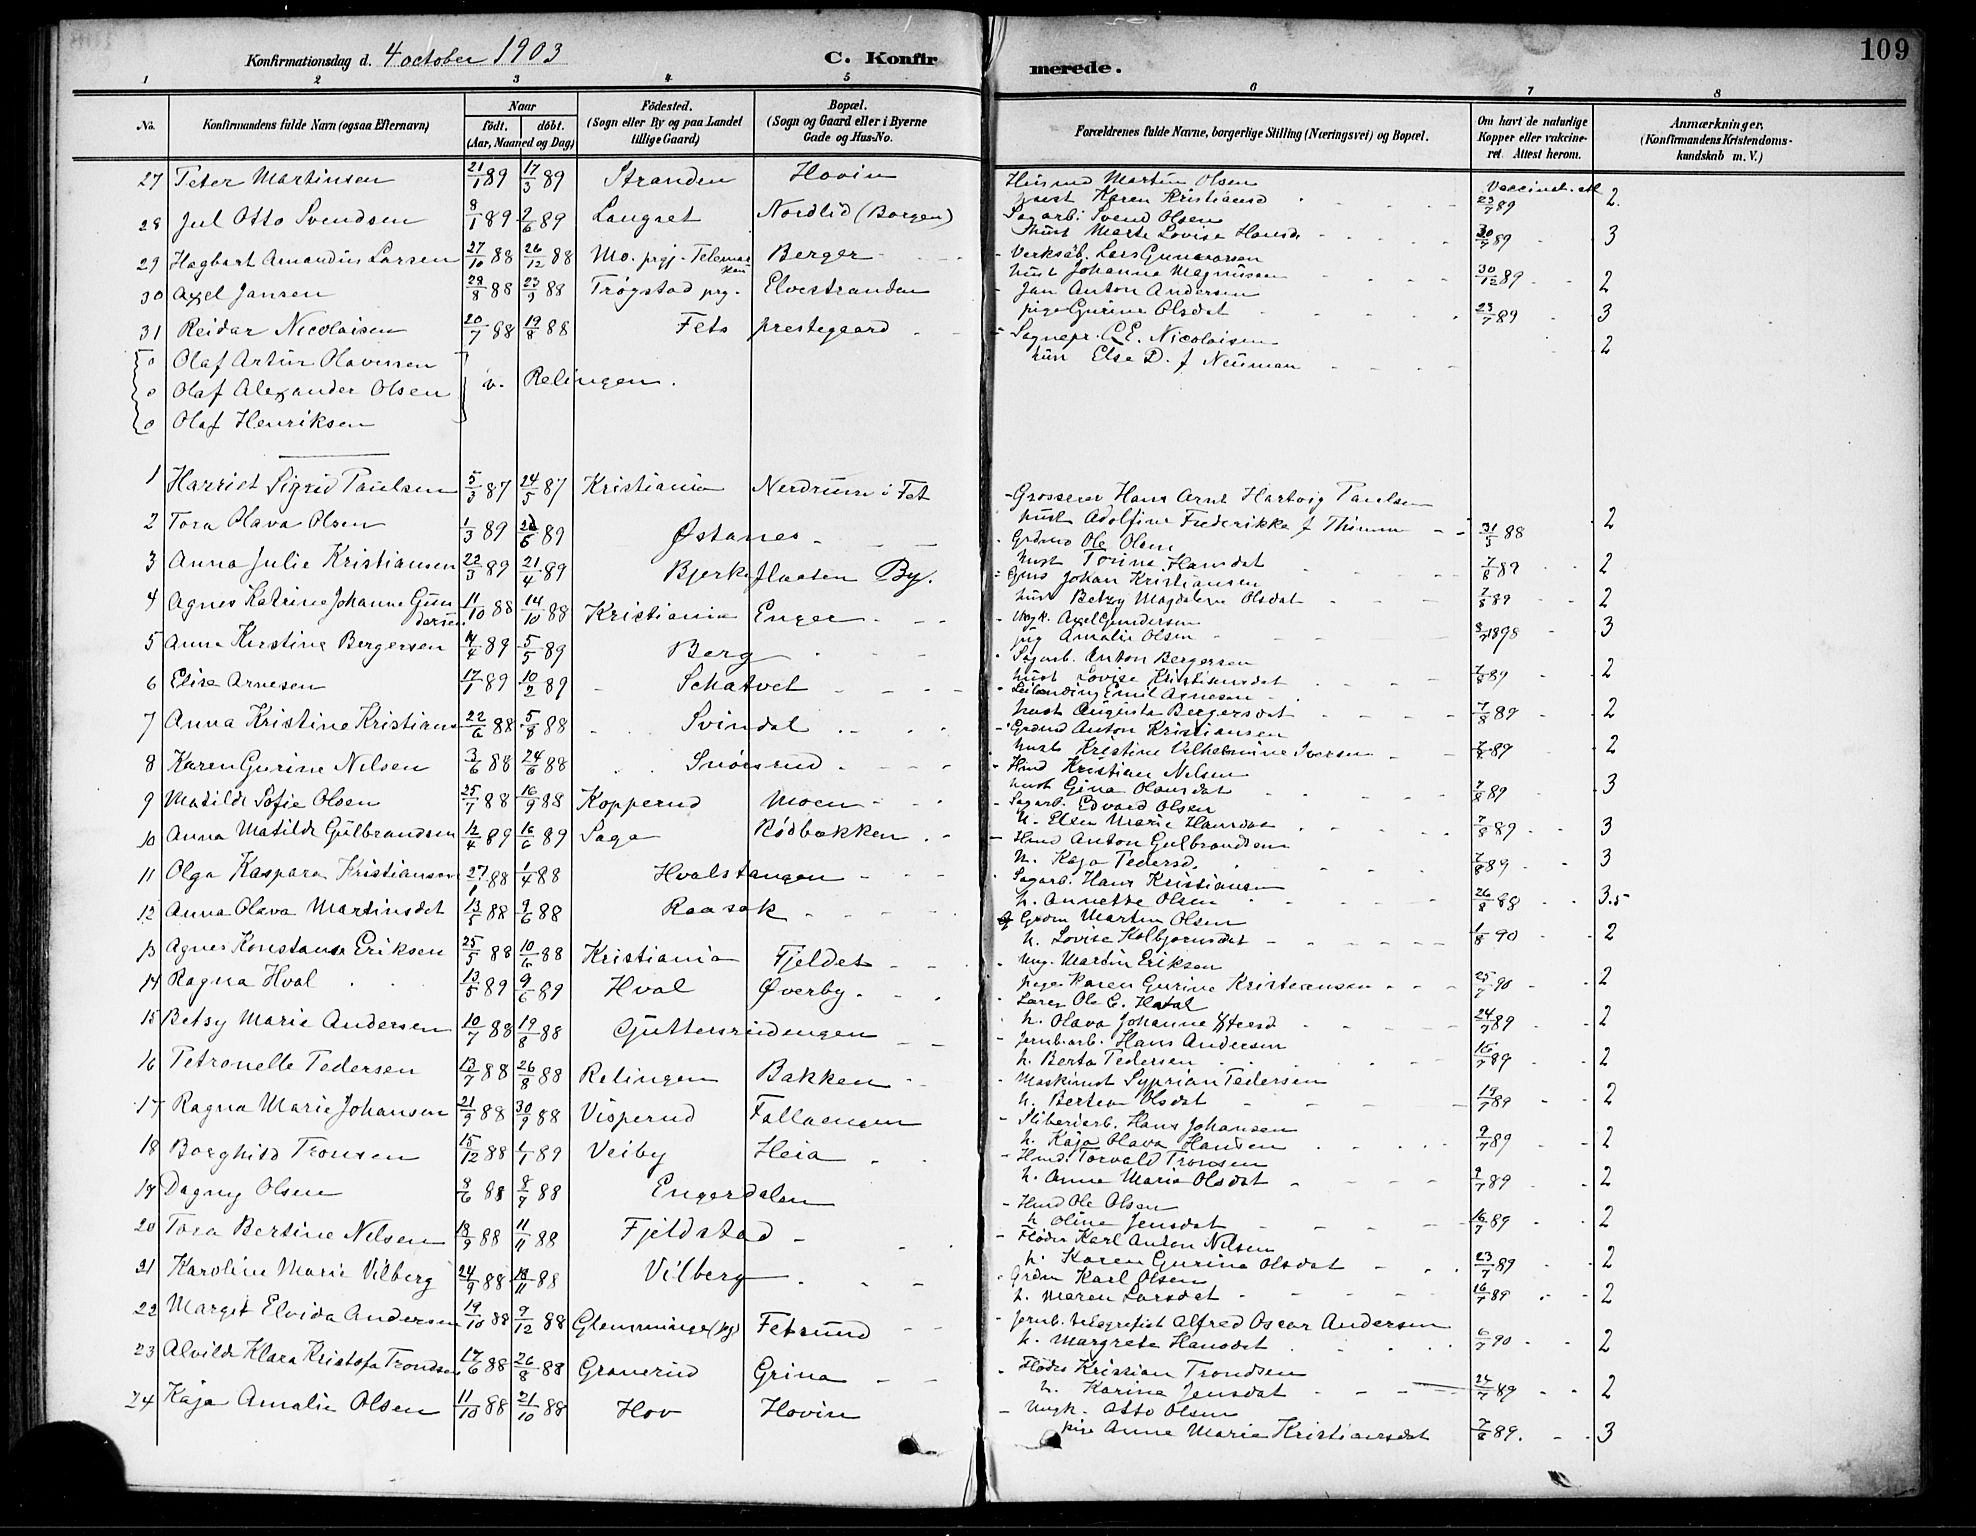 109
Konfirmationsdag d. 4 october 1903 C. Konfirmerede.
1 2 3 4 5 6 7 8
No. Konfirmandens fulde Navn (ogsaa Efternavn) Naar födt. döbt. (Aar, Maaned og Dag) Födested. (Sogn eller By og paa Landet tillige Gaard) Bopæl. (Sogn og Gaard eller i Byerne Gade og Hus-No. Forældrenes fulde Navne, borgerlige Stilling (Næringsvei) og Bopæl. Om havt de naturlige Kopper eller vakcineret Attest herom. Anmærkninger, (Konfirmandens Kristendomskundskab m. V.)
27 Peter Martinsen 21/1 89 17/3 89 Stranden Hovin Husmd Martin Olsen
hust Karen Kristiansd 23/7 89 2.
28 Jul Otto Svendsen 8/1 89 2/6 89 Langset Nordlid (Borgen) Sagarb. Svend Olsen
hust Marte Lovise Hansd 30/7 89 3
29 Hagbart Amandus Larsen 27/10 88 26/12 88 Mo. prgj. Telemarken Berger Verksarb. Lars Gunnarsen
hust Johanne Magnussen 30/12 89 2
30 Axel Jansen 28/8 88 23/9 88 Trøgstad prg. Elvestranden Jan Anton Andersen
pige Gurine Olsdat 23/7 89 3
31 Reidar Nicolaisen 20/7 88 19/8 88 Fets prestegaard Sognepr. C.E. Nicolaisen
hust Else D. f Neuman 2
0 Olaf Artur Olavesen
0 Olaf Alexander Olsen v. Relingen.
0 Olaf Henriksen
1 Harriet Sigrid Paulsen 5/3 87 24/5 87 Kristiania Nerdrum i Fet Grosserer Hans Arnt Hartvig Paulsen
hust Adolfine Frederikke f Thimm 31/5 88 2
2 Tora Olava Olsen 1/3 89 89 Østanes Grdmd Ole Olsen
hust Torine Hansdat 7/8 89 2
3 Anna Julie Kristiansen 22/3 89 21/4 89 Bjerkeflaeten By. Johan Kristiansen
hust Betzy Magdalene Olsdat 7/8 89 2
4 Agnes Katrine Johanne Gundersen 11/10 88 14/10 88 Kristiania Enger Ungk. Axel Gundersen
pig Amalie Olsen 1898 3
5 Anna Kirstine Bergersen 14/4 89 5/5 89 Berg Sagarb. Anton Bergersen
hust Lovise Kristiansdat 7/8 89 2
6 Elise Arnesen 17/1 89 10/2 89 Schatvet Leilending Emil Arnesen
hust Augusta Bergersdat 7/8 89 2
7 Anna Kristine Kristians 22/6 88 5/8 88 Svindal Grdmd Anton Kristiansen
hust Kristine Vilhelmine Iversen 7/8 89 2
8 Karen Gurine Nilsen 3/6 88 24/6 88 Snörsrud Hmd Kristian Nilsen
hust Gina Olausdat 7/8 89 3
9 Matilde Sofie Olsen 25/7 88 16/9 88 Kopperud Moen Sagarb. Edvard Olsen
h. Elen Marie Hansdat 7/8 89 3
10 Anna Matilde Gulbrandsen 12/4 89 16/6 89 Saga Rödbækken Hmd Anton Gulbrandsen
h. Kaja Pedersd. 7/8 89 3
11 Olga Kaspara Kristiansen 27/1 88 1/4 88 Hvalstangen Sagarb. Hans Kristiansen
h. Annette Olsen 26/8 88 3.5
12 Anna Olava Martinsdat 13/5 88 9/6 88 Raasok Grdm Martin Olsen
h. Lovise Kolbjørnsdat 1/8 90 2
13 Agnes Konstanse Eriksen 25/5 88 10/6 88 Kristiania Fjeldet Ung. Martin Eriksen
pige Karen Gurine Kristiansen 25/7 90 2
14 Ragna Hval 13/5 89 9/6 89 Hval Øverby Lærer Ole E. Hval
h. Olava Johanne 24/7 89 2
15 Betsy Marie Andersen 10/7 88 19/8 88 Guttersrudengen Jernb.arb. Hans Andersen
h. Berta Pedersen 16/7 89 2
16 Petronelle Pedersen 13/7 88 26/8 88 Relingen Bakken Maskinist Syprian Pedersen
h. Bertea Olsdat 19/7 89 2
17 Ragna Marie Johansen 21/9 88 30/9 88 Visperud Fallaengen Sliberiarb. Hans Johansen
h. Kaja Olava Hansen 9/7 89 2
18 Borghild Tronsen 15/12 88 1/1 89 Veiby Heia Hmd. Torvald Tronsen
h. Anne Marie Olsdat 9/7 89 2
19 Dagny Olsen 8/6 88 8/7 88 Engerdalen Hmd Ole Olsen
h. Oline Jensdat 16/7 89 2
20 Tora Bertine Nilsen 18/9 88 11/11 88 Fjeldstad Fløder Karl Anton Nilsen
h. Karen Gurine Olsdat 23/7 89 2
21 Karoline Marie Vilberg 24/9 88 18/11 88 Vilberg Grdm Karl Olsen
h. Maren Larsdat 16/7 89 2
22 Margit Elvida Andersen 19/10 88 9/12 88 Glemminge (prgj) Fetsund Jernb. telegrafist Alfred Oscar Andersen
h. Margrete Hansdat 6/7 90 2
23 Alvilde Klara Kristofa Trondsen 17/6 88 26/8 88 Granerud Grina Fløder Kristian Trondsen
h. Karine Jensdat 24/7 89 2
24 Kaja Amalie Olsen 11/10 88 21/10 88 Hov Hovin Ungk. Otto Olsen
pige Anne Marie Kristiansdat 7/8 89. 3